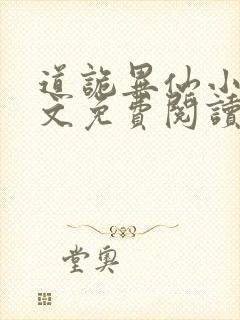 道詭異仙小
文免費閱讀
堂奧